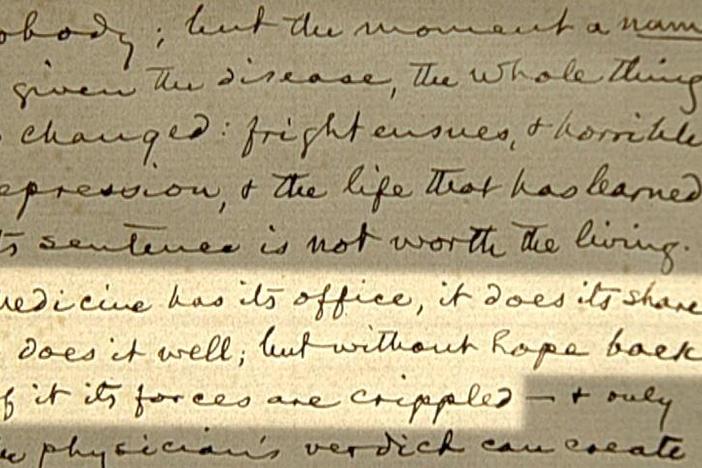 obody; but the moment a nam
given the disease, the whole thing
changed: fright ensues, & horrible
epression, & the life that has learned
ts sentence is not worth the living.
edicine has its office, it does its share
does it well; but without hope back
f it its forces are crippled — & only
physician's verdict can create